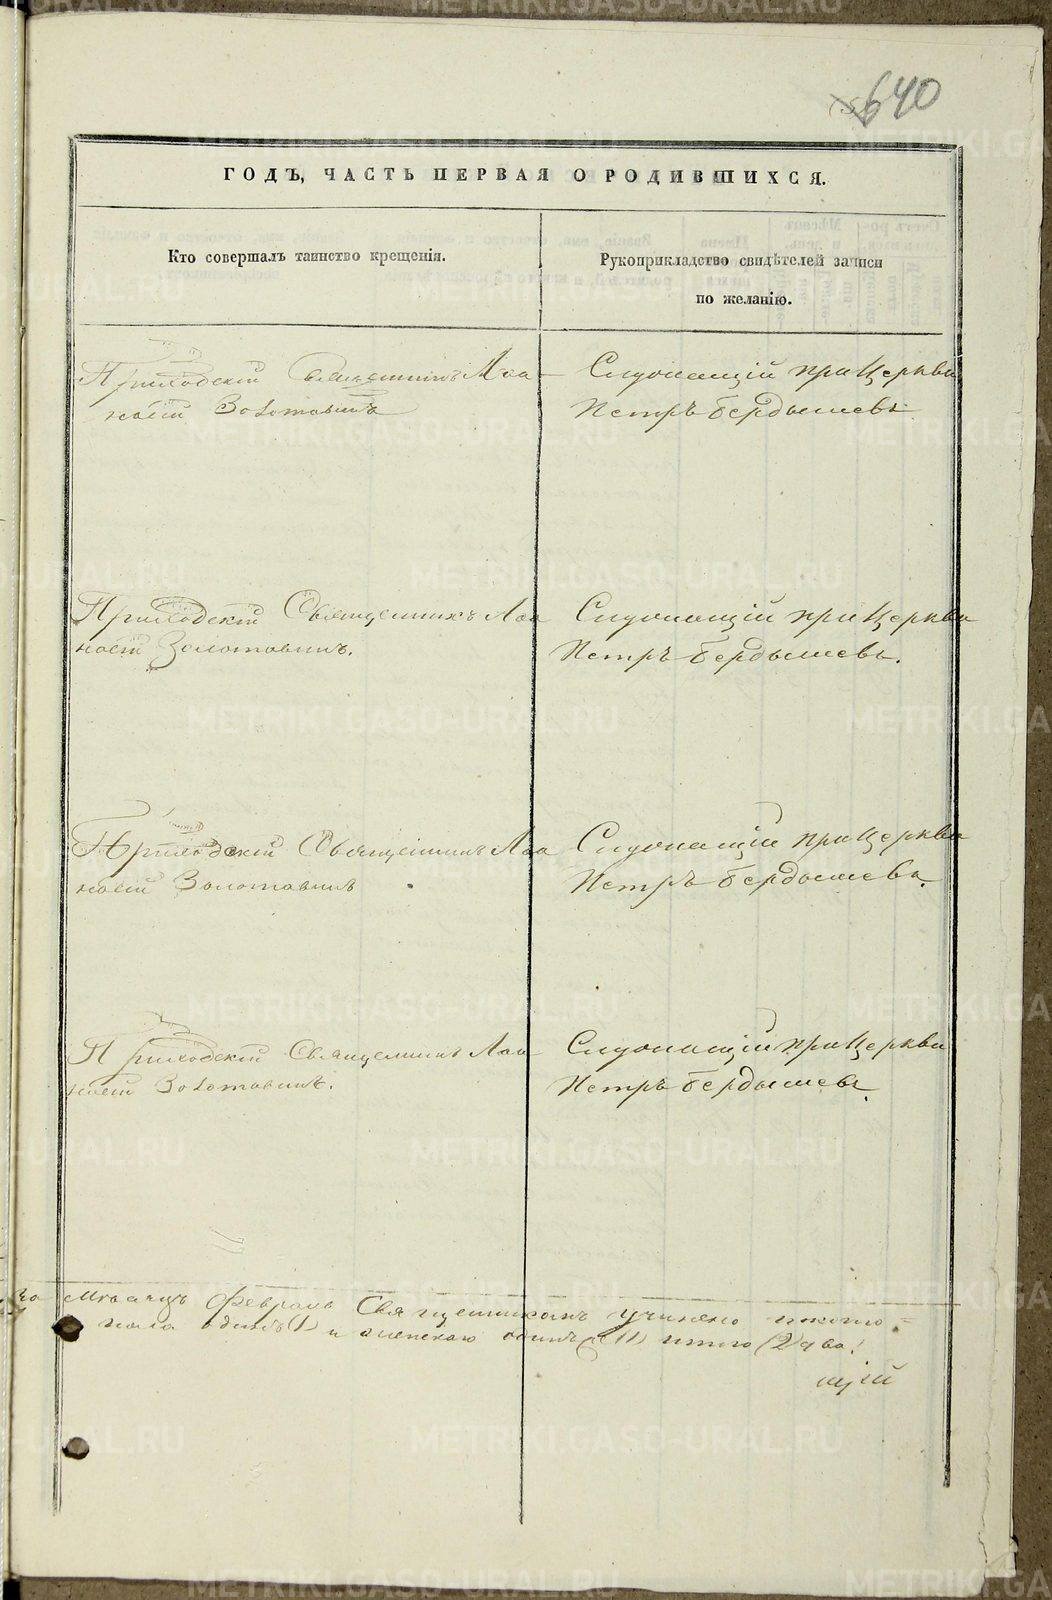 640
ГОДЪ, ЧАСТЬ ПЕРВАЯ О РОДИВШИХСЯ.
Кто совершалъ таинство крещенія.
Рукоприкладство свидѣтелей записи
по желанію.
Приходскій Священникъ Аѳа
насій Золотавинъ
Служащій при Церкви
Петръ Бердышевъ
Приходскій Священникъ Аѳа
насій Золотавинъ.
Служащій при Церкви
Петръ Бердышевъ.
Приходскій Священникъ Аѳа
насій Золотавинъ
Служащій при Церкви
Петръ Бердышевъ.
Приходскій Священникъ Аѳа
насій Золотавинъ.
Служащій при Церкви
Петръ Бердышевъ.
мѣсяцъ Февраль
пола одинъ (1) и женскаго одинъ (1) итого (2) два.
щій
METRIKI.GASO-URAL.RU